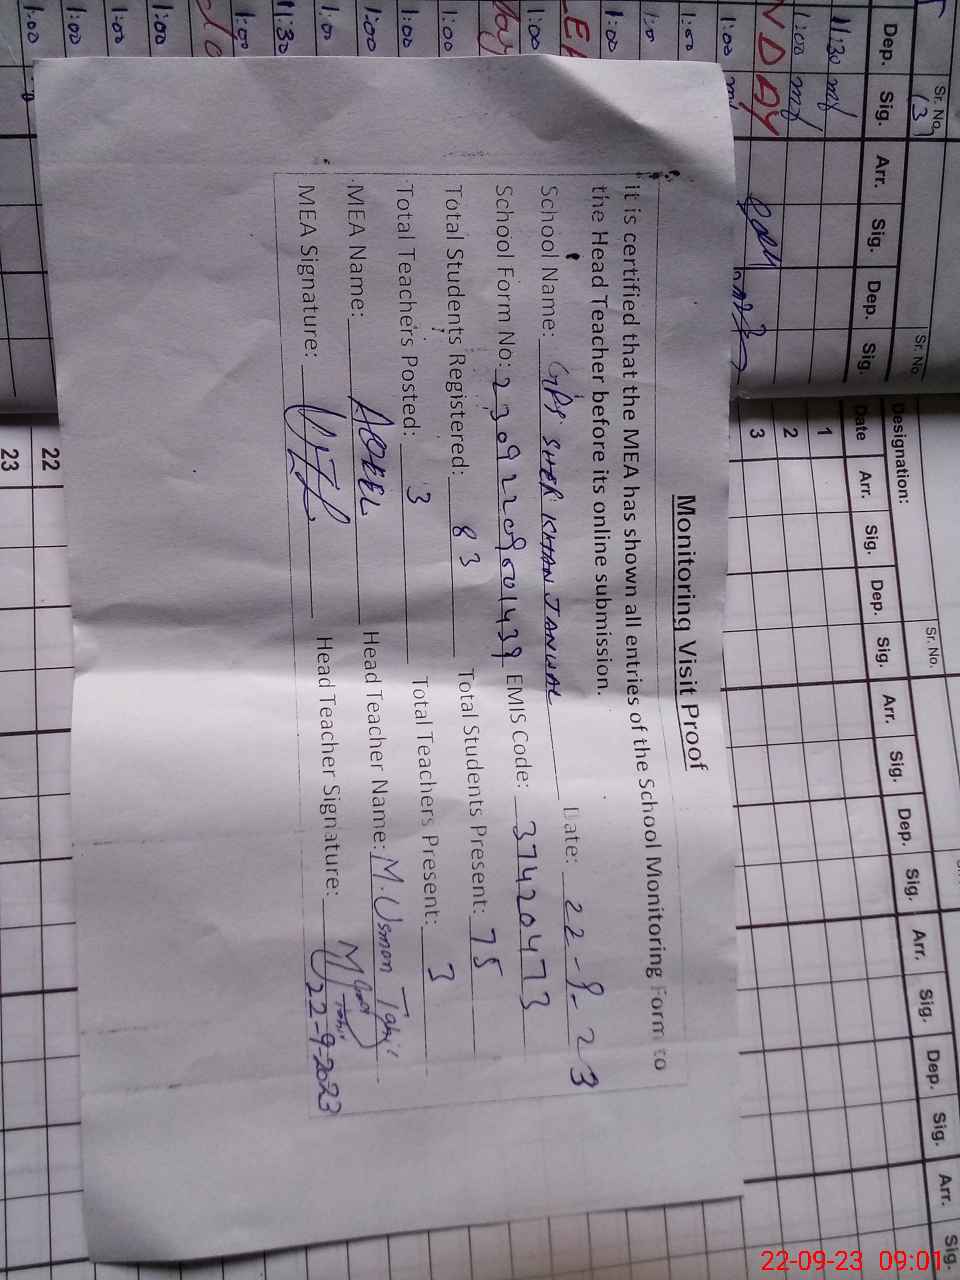 Monitoring Visit Proof
It is certified that the MEA has shown all entries of the School Monitoring Form to
the Head Teacher before its online submission.
School Name: GPS SHER KHAN JANWAL Date: 22-9-23
School Form No: 23092209001439 EMIS Code: 37420473
Total Students Registered: 83 Total Students Present: 75
Total Teachers Posted: 3 Total Teachers Present: 3
MEA Name: AQEEL Head Teacher Name: M. Usman Tahir
MEA Signature: Head Teacher Signature: 22-9-2023
Sr. No. Sr. No. Sr. No.
Designation:
Dep. Sig. Arr. Sig. Dep. Sig. Date Arr. Sig. Dep. Sig. Arr. Sig. Dep. Sig. Arr. Sig. Dep. Sig. Arr. Sig.
11:30 1
1:00 2
3
1:00
1:00
1:00
1:00
1:00
1:00
1:00
1:00
11:30
1:00
1:00
1:00
1:00 22
1:00 23
22-09-23 09:01